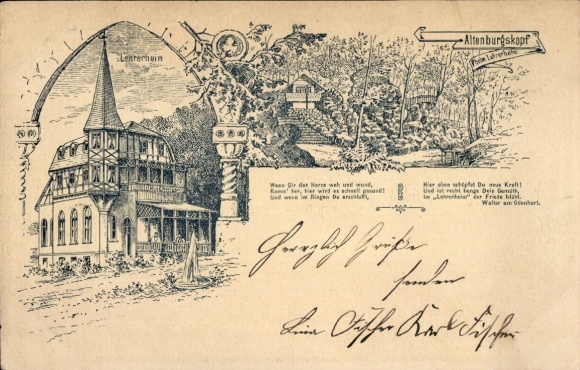 Lehrerheim
Altenburgskopf
beim Lehrerheim
Wenn Dir das Herze weh und wund,
Komm' her, hier wird es schnell gesund!
Und wenn im Ringen Du erschlafft,
Hier oben schöpfst Du neue Kraft!
Und ist recht bange Dein Gemüth,
Im „Lehrerheim“ der Friede blüht.
Walter am Odenhart.
Herzlich Grüße
senden
Fischer Karl Fischer